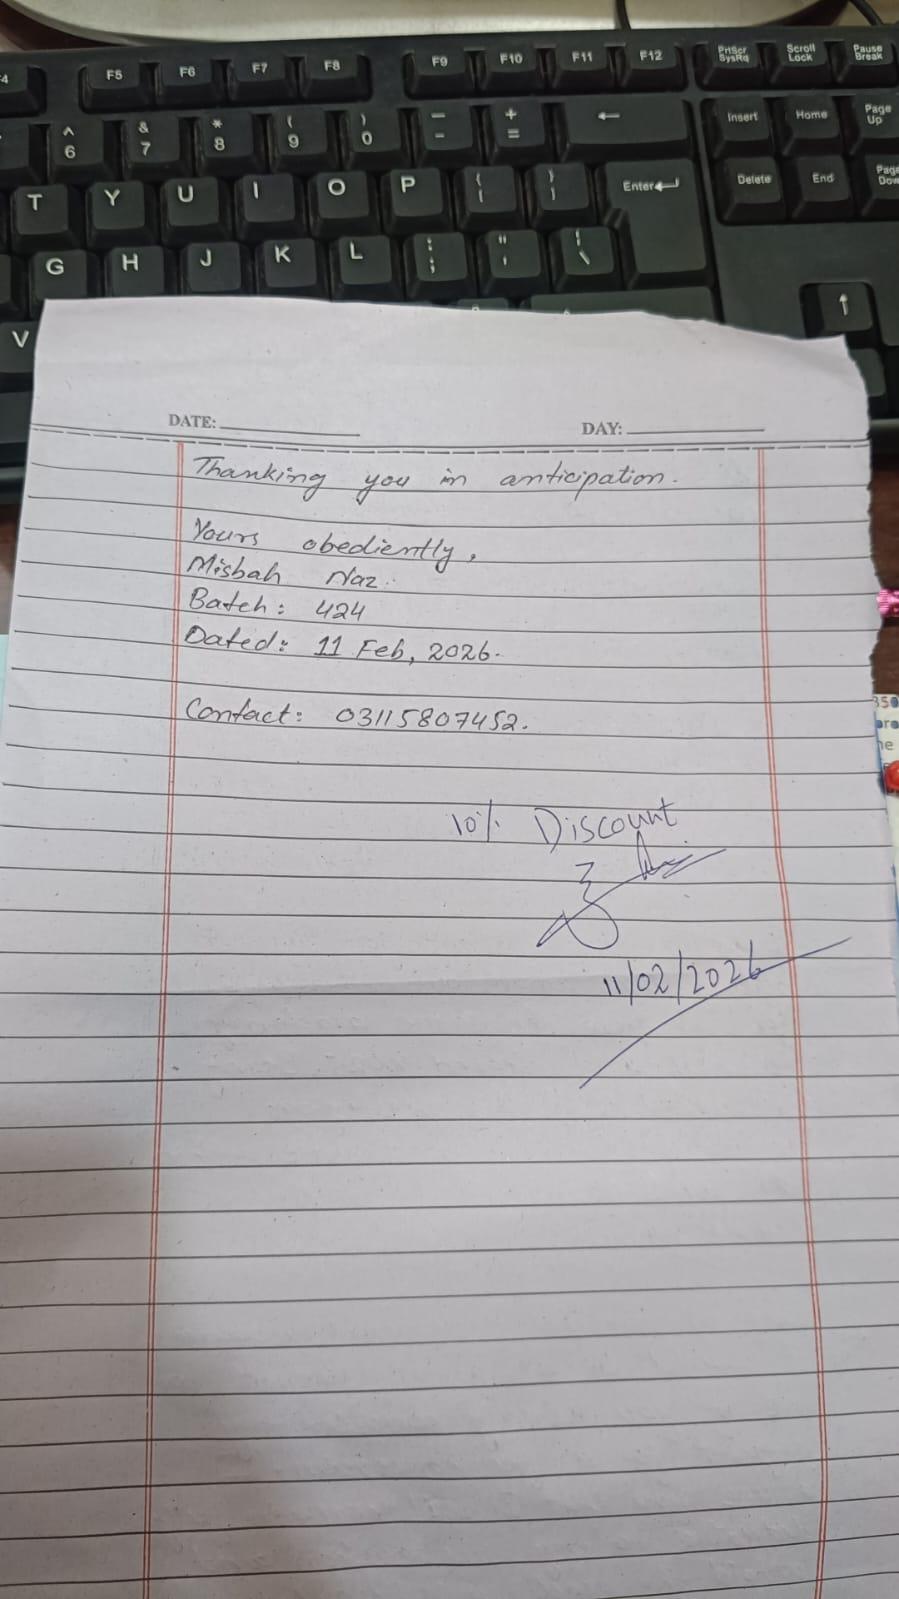 F5 F6 F7 F8 F9 F10 F11 F12 PrtScr SysRq Scroll Lock Pause Break
^ 6 & 7 * 8 ( 9 ) 0 - + = Insert Home Page Up
T Y U I O P { [ } ] Enter Delete End Page
G H J K L : ; " ' | \
V
DATE: DAY:
Thanking you in anticipation.
Yours obediently,
Misbah Naz.
Batch: 424
Dated: 11 Feb, 2026.
Contact: 03115807452.
10% Discount
11/02/2026